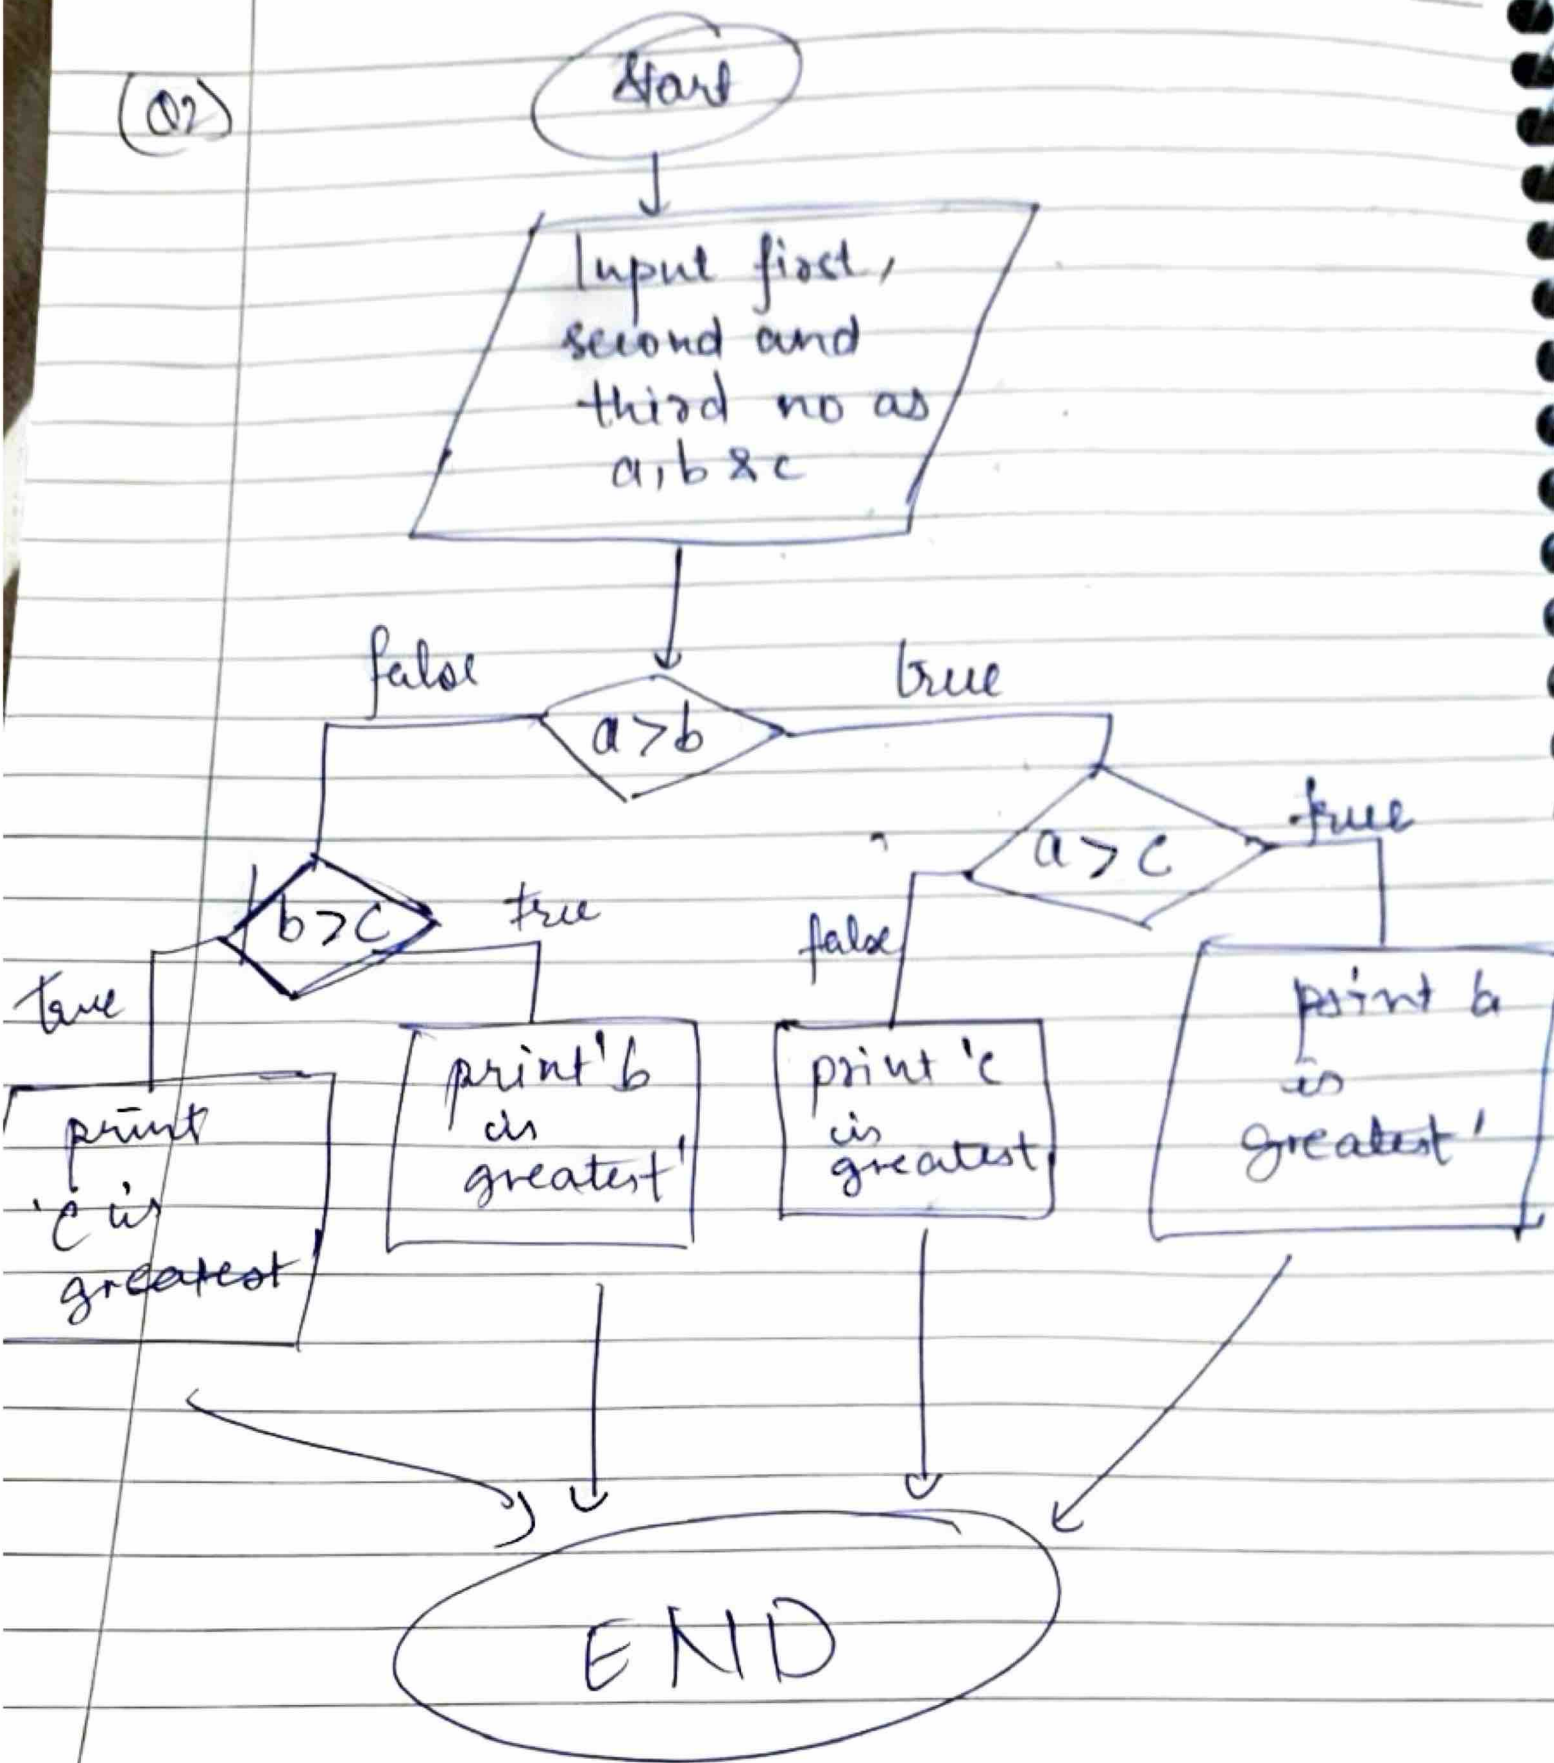 (Q2)
Start
Input first,
second and
third no as
a, b & c
false
true
a>b
true
a>c
b>c
true
false
true
print
'c is
greatest'
print 'b
is
greatest'
print 'c
is
greatest
print a
is
greatest'
END